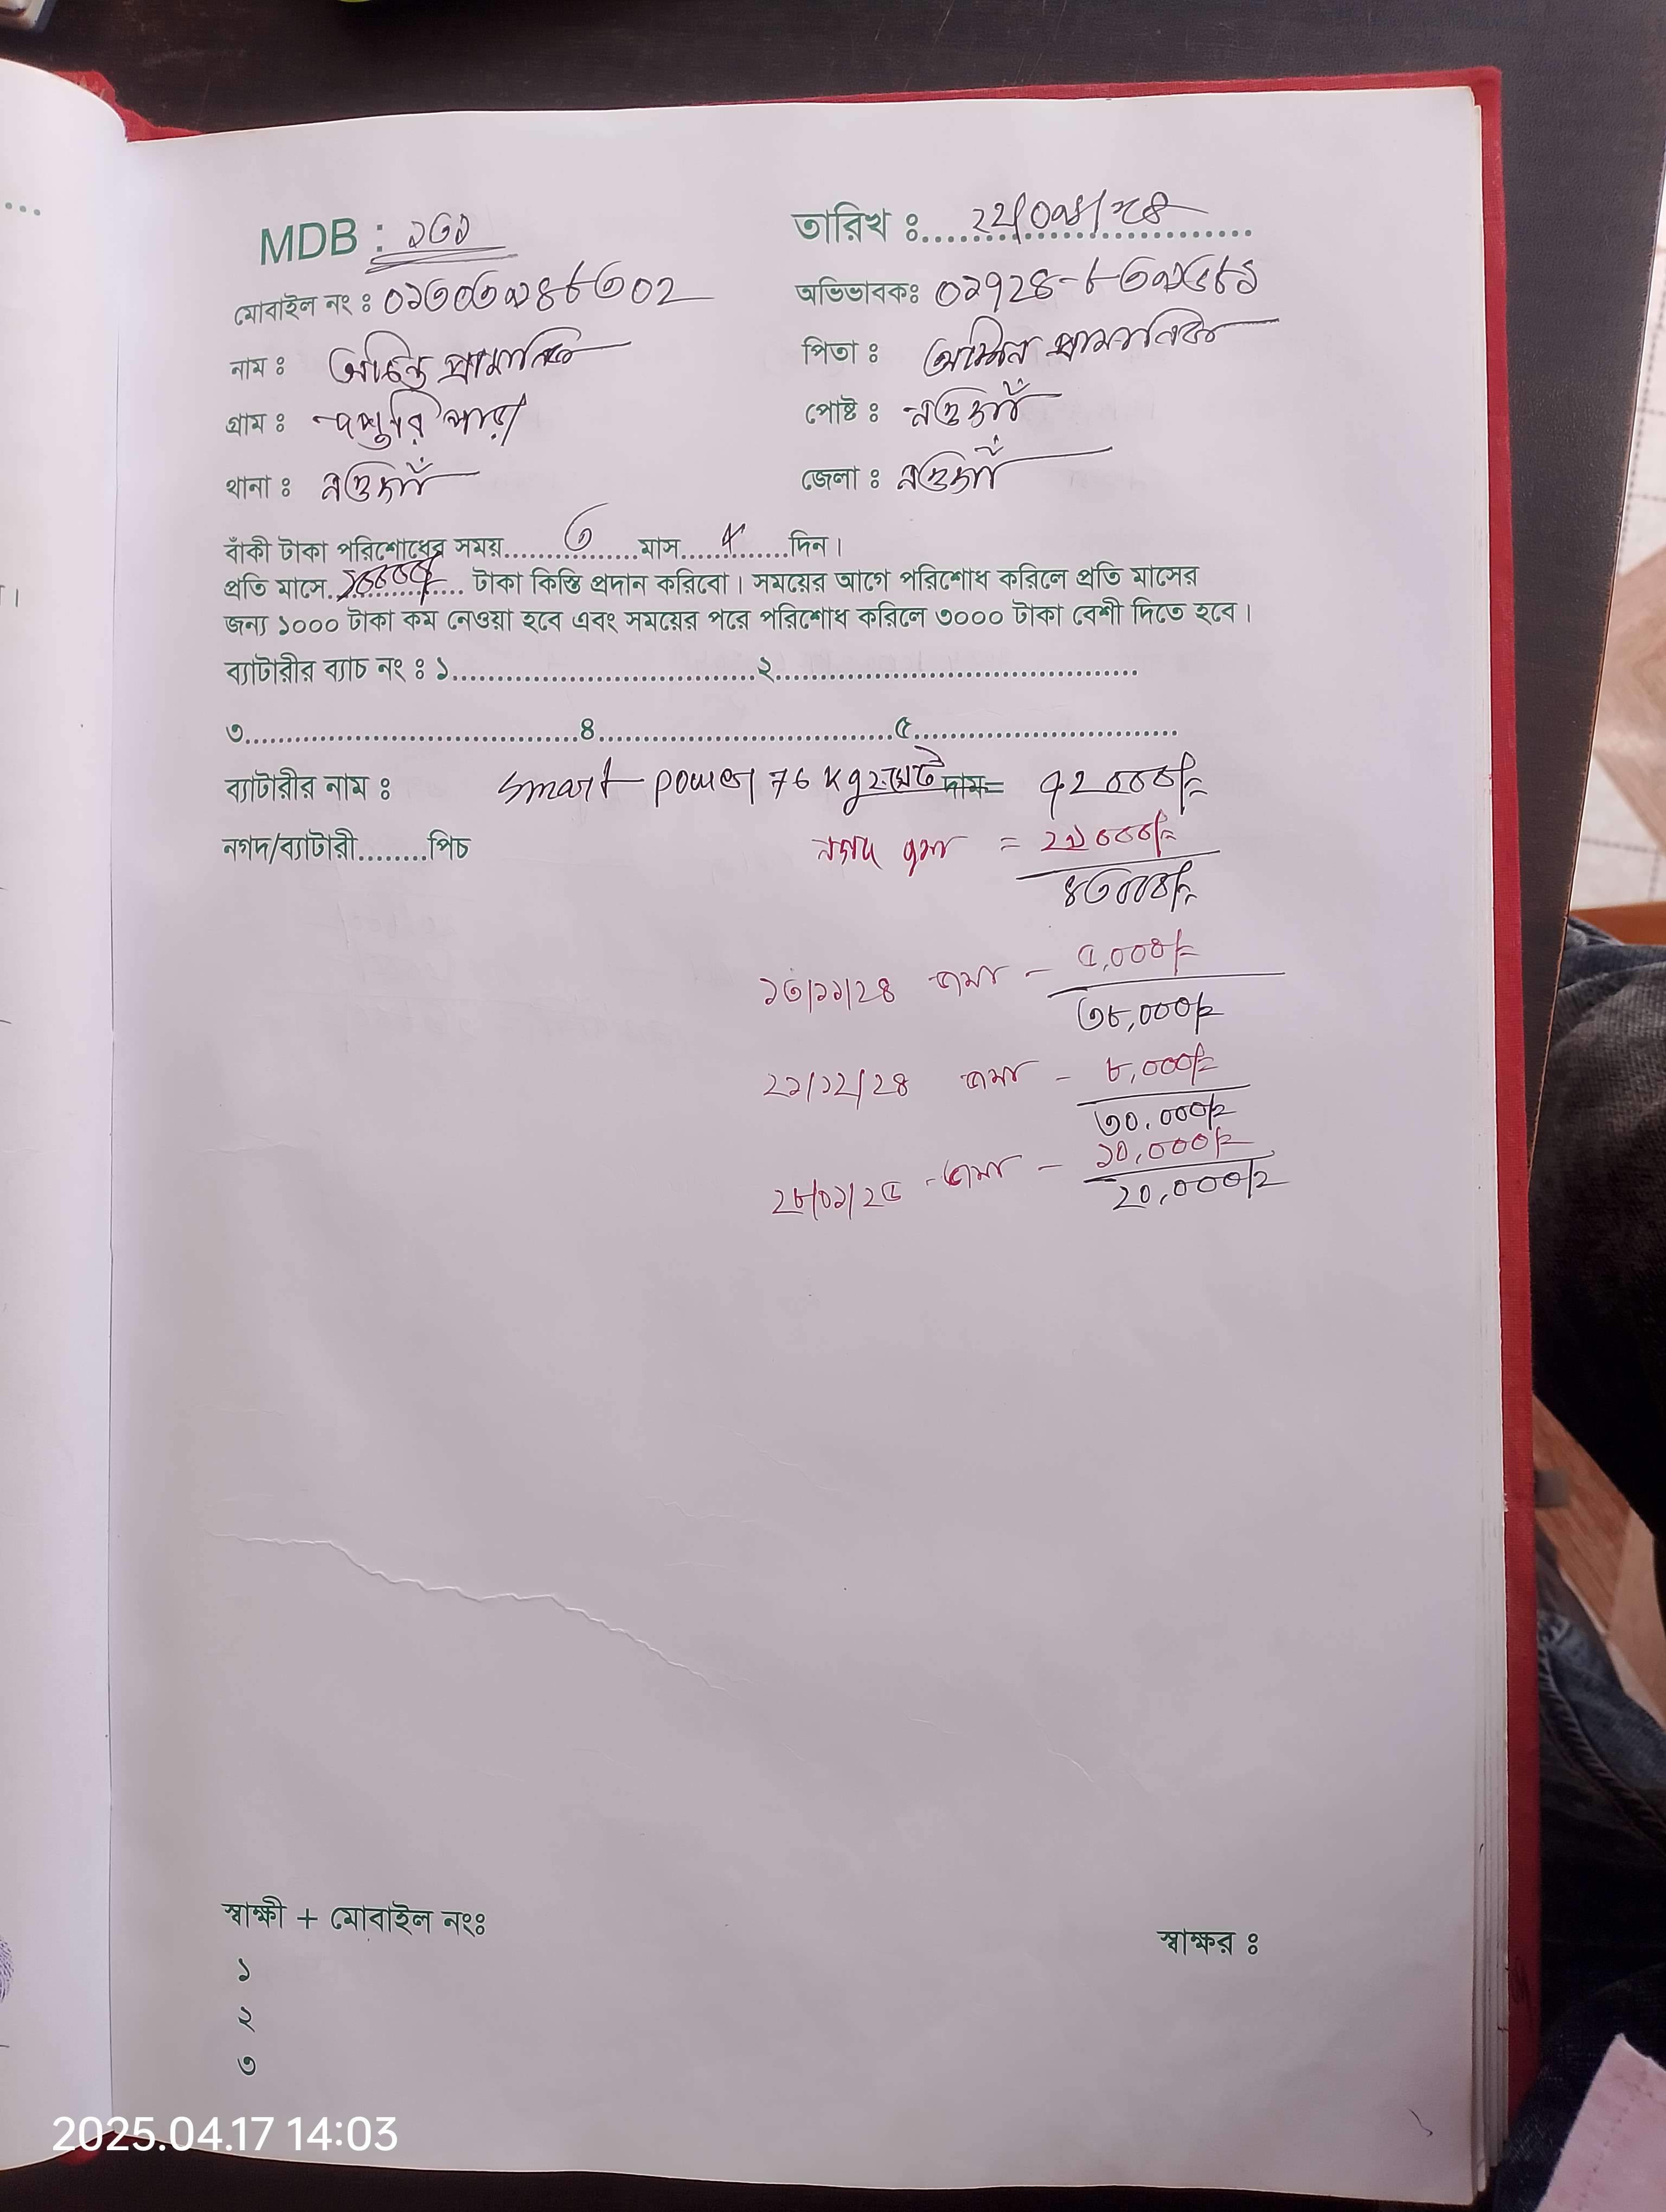 MDB : ১৩১ তারিখ ঃ
মোবাইল নং ঃ অভিভাবকঃ
নাম ঃ প্রামানিক পিতা ঃ প্রামানিক
গ্রাম ঃ পোষ্ট ঃ নওগাঁ
থানা ঃ নওগাঁ জেলা ঃ নওগাঁ
বাঁকী টাকা পরিশোধের সময়..........৩..........মাস..........×..........দিন।
প্রতি মাসে..১০০০০/.. টাকা কিস্তি প্রদান করিবো। সময়ের আগে পরিশোধ করিলে প্রতি মাসের
জন্য ১০০০ টাকা কম নেওয়া হবে এবং সময়ের পরে পরিশোধ করিলে ৩০০০ টাকা বেশী দিতে হবে।
ব্যাটারীর ব্যাচ নং ঃ ১....................................২..........................................
৩.......................................৪.....................................৫...............................
ব্যাটারীর নাম ঃ smart power 76 kg দাম= ৭২০০০/=
নগদ/ব্যাটারী........পিচ নগদ জমা = ২৯০০০/=
৪৩০০০/=
১৩/১১/২৪ জমা - ৫,০০০/=
৩৮,০০০/=
২১/১২/২৪ জমা - ৮,০০০/=
৩০,০০০/=
২৮/০১/২৫ - জমা - ১০,০০০/=
২০,০০০/=
স্বাক্ষী + মোবাইল নংঃ
স্বাক্ষর ঃ
১
২
৩
2025.04.17 14:03